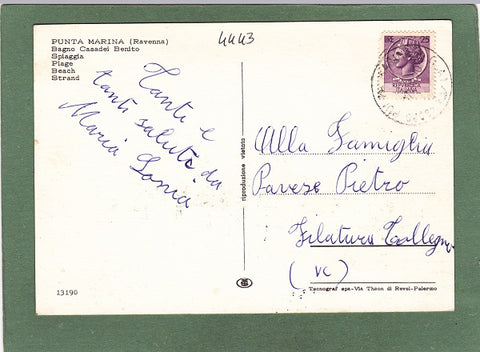 4443
PUNTA MARINA (Ravenna)
Bagno Casadei Benito
Spiaggia
Plage
Beach
Strand
Tanti e
tanti saluti da
Maria Sonia
riproduzione vietata
LIRE 25
Alla Famiglia
Pavese Pietro
Filatura Tollegno
(VC)
13190
Tecnograf spa-Via Thaon di Revel-Palermo